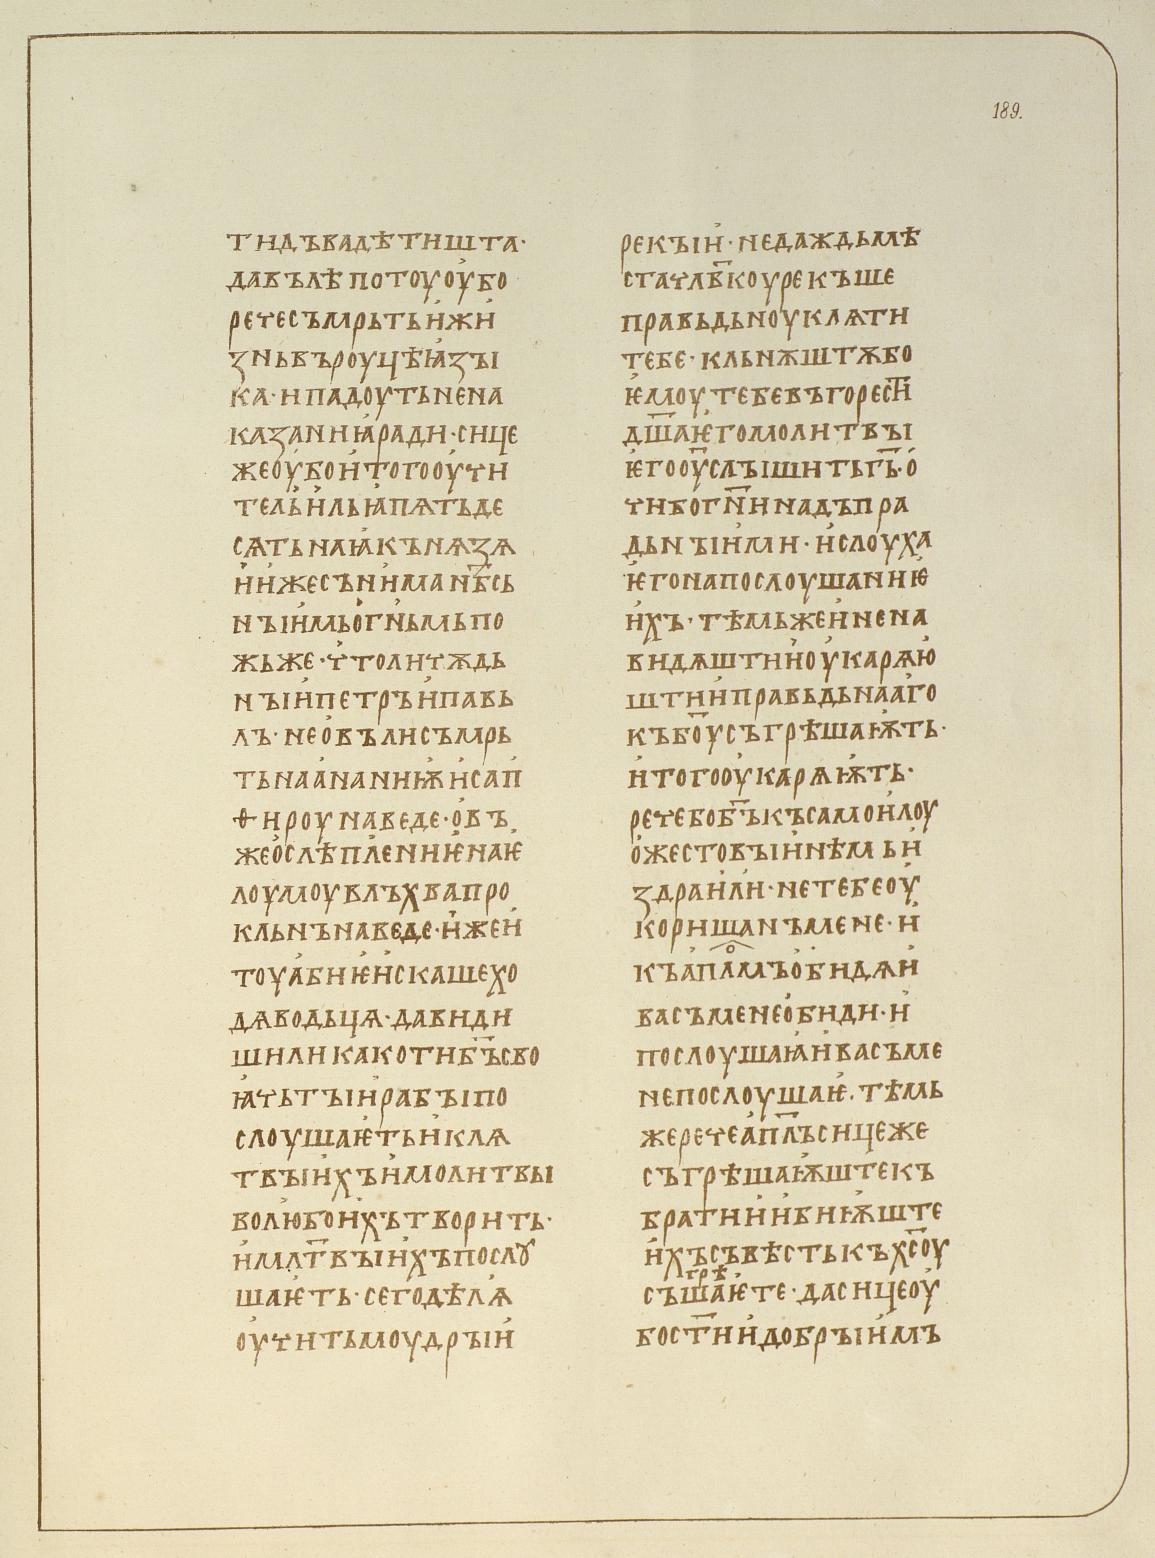 189.
тидъвадѣтишта·
давълѣпотоуоубо
речесъмрьтьижи
ꙁньвъроуцѣꙗꙁꙑ
ка·ипадоутьнена
каꙁанияради·сице
жеоубоитогооучи
тельильꙗпѧтьде
сѧтьнаꙗкънѧꙁѧ
иижесънимаnб҃сь
нъіимьогньмьпо
жьже·чтоличѫдь
нъіипетръипавь
лъ·неовълисъмрь
тьнаананиѭисап
фироунаведе·овъ
жеослѣплениѥнаѥ
лоумоувлъхвапро
кльнънаведе·ижеи
тоуабиѥискашехо
дѧводьцѧ·давиди
шиликакотиб҃ъсво
ꙗчьтъіирабъіпо
слоушаѥтьиклѧ
твъіихъимолитвы
волюбоихътворить·
имлт҃въіихъпослꙋ
шаѥть·сегодѣлѧ
оучитьмоудръіи
рекъіи·недаждьмѣ
стачлв҃коурекъше
правьдьноуклѧти
тебе·кльнѫштѫбо
ѥмоутебевъгорест҃и
дш҃аѥгомолитвъі
ѥгооуслъішитьг҃ь·о
чибогн҃инадъпра
дьнъіими·ислоуха
ѥгонапослоушаниѥ
ихъ·тѣмьжеинена
видѧштииоукарѧю
штиправьдьнааго
къбоусъгрѣшаѭть·
итогооукарѧѭть·
речебоб҃ъкъсамоилоу
ожестовъіинѣмьи
ꙁдраили·нетебеоу
коришѧнъмене·и
къап҃ломъобидѧи
васъменеобиди·и
послоушаꙗивасъме
непослоушаѥ·тѣмь
жеречеап҃лъсицеже
съгрѣшаѭштекъ
братиибиѭште
ихъсъвѣстькъхс҃оу
съгрѣшаѥте·дасицеоу
бост҃иидобръіимъ